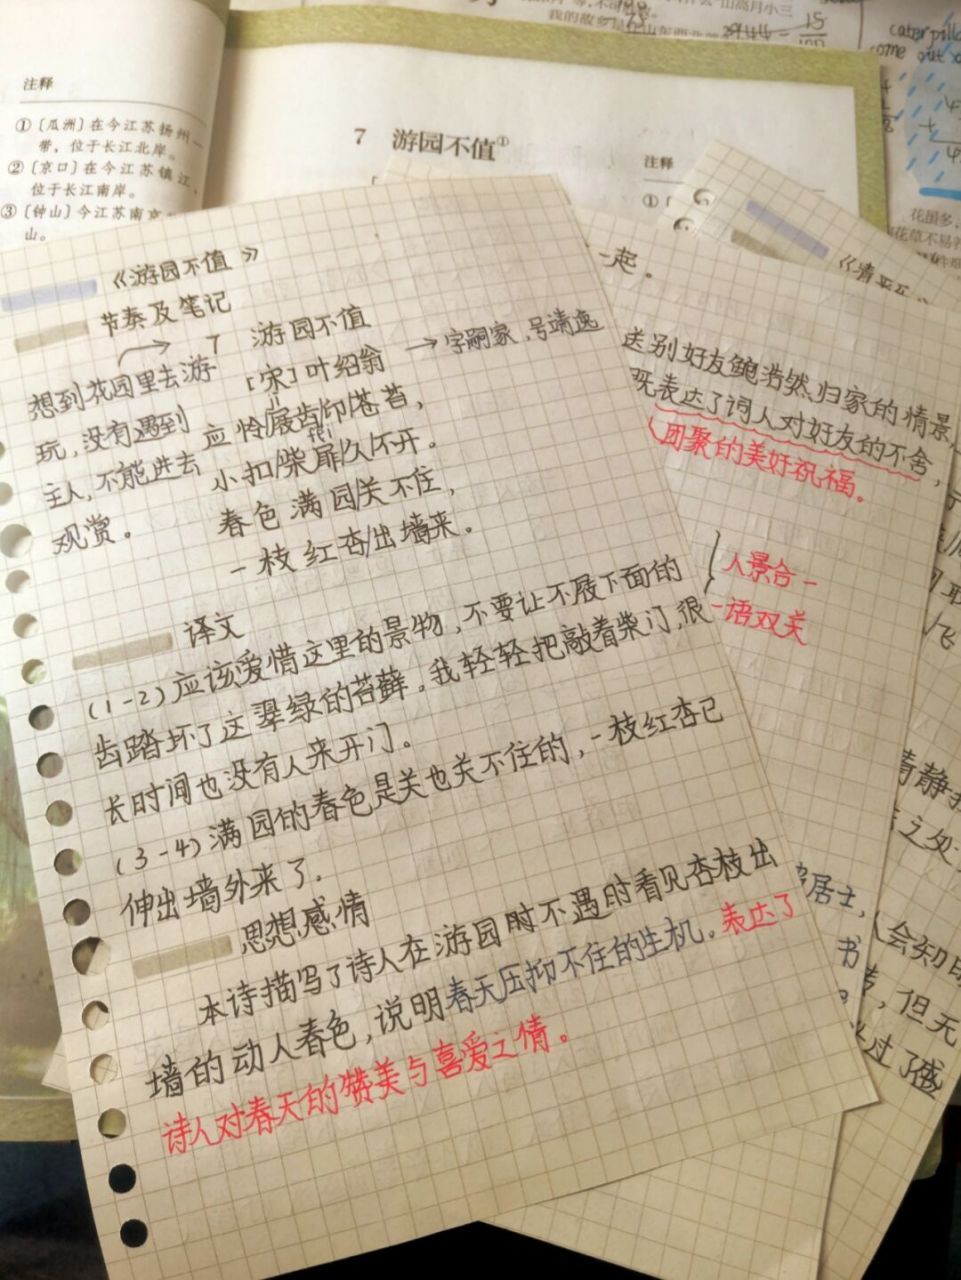 注释
①〔瓜洲〕在今江苏扬州一
带，位于长江北岸。
②〔京口〕在今江苏镇江，
位于长江南岸。
③〔钟山〕今江苏南京
山。
7 游园不值①
注释
山高月小三
caterpill
come out
花园多，
花草不易
《游园不值》
节奏及笔记
7 游园不值
[宋]叶绍翁
→字嗣宗，号靖逸
想到花园里去游
玩，没有遇到
主人，不能进去
观赏。
应怜/屐齿/印/苍苔，
小扣/柴扉/久/不开。
春色满园关不住，
一枝红杏/出墙来。
译文
(1-2)应该爱惜这里的景物，不要让木屐下面的
齿踏坏了这翠绿的苔藓。我轻轻把敲着柴门，很
长时间也没有人来开门。
(3-4)满园的春色是关也关不住的，一枝红杏已
伸出墙外来了。
思想感情
本诗描写了诗人在游园时不遇时看见杏枝出
墙的动人春色，说明春天压抑不住的生机。表达了
诗人对春天的赞美与喜爱之情。
一起。
送别好友鲍浩然归家的情景，
既表达了词人对好友的不舍，
团聚的美好祝福。
人景合一
一语双关
居士，
书
《清平乐
清静
之处
人会知
，但无
过了感